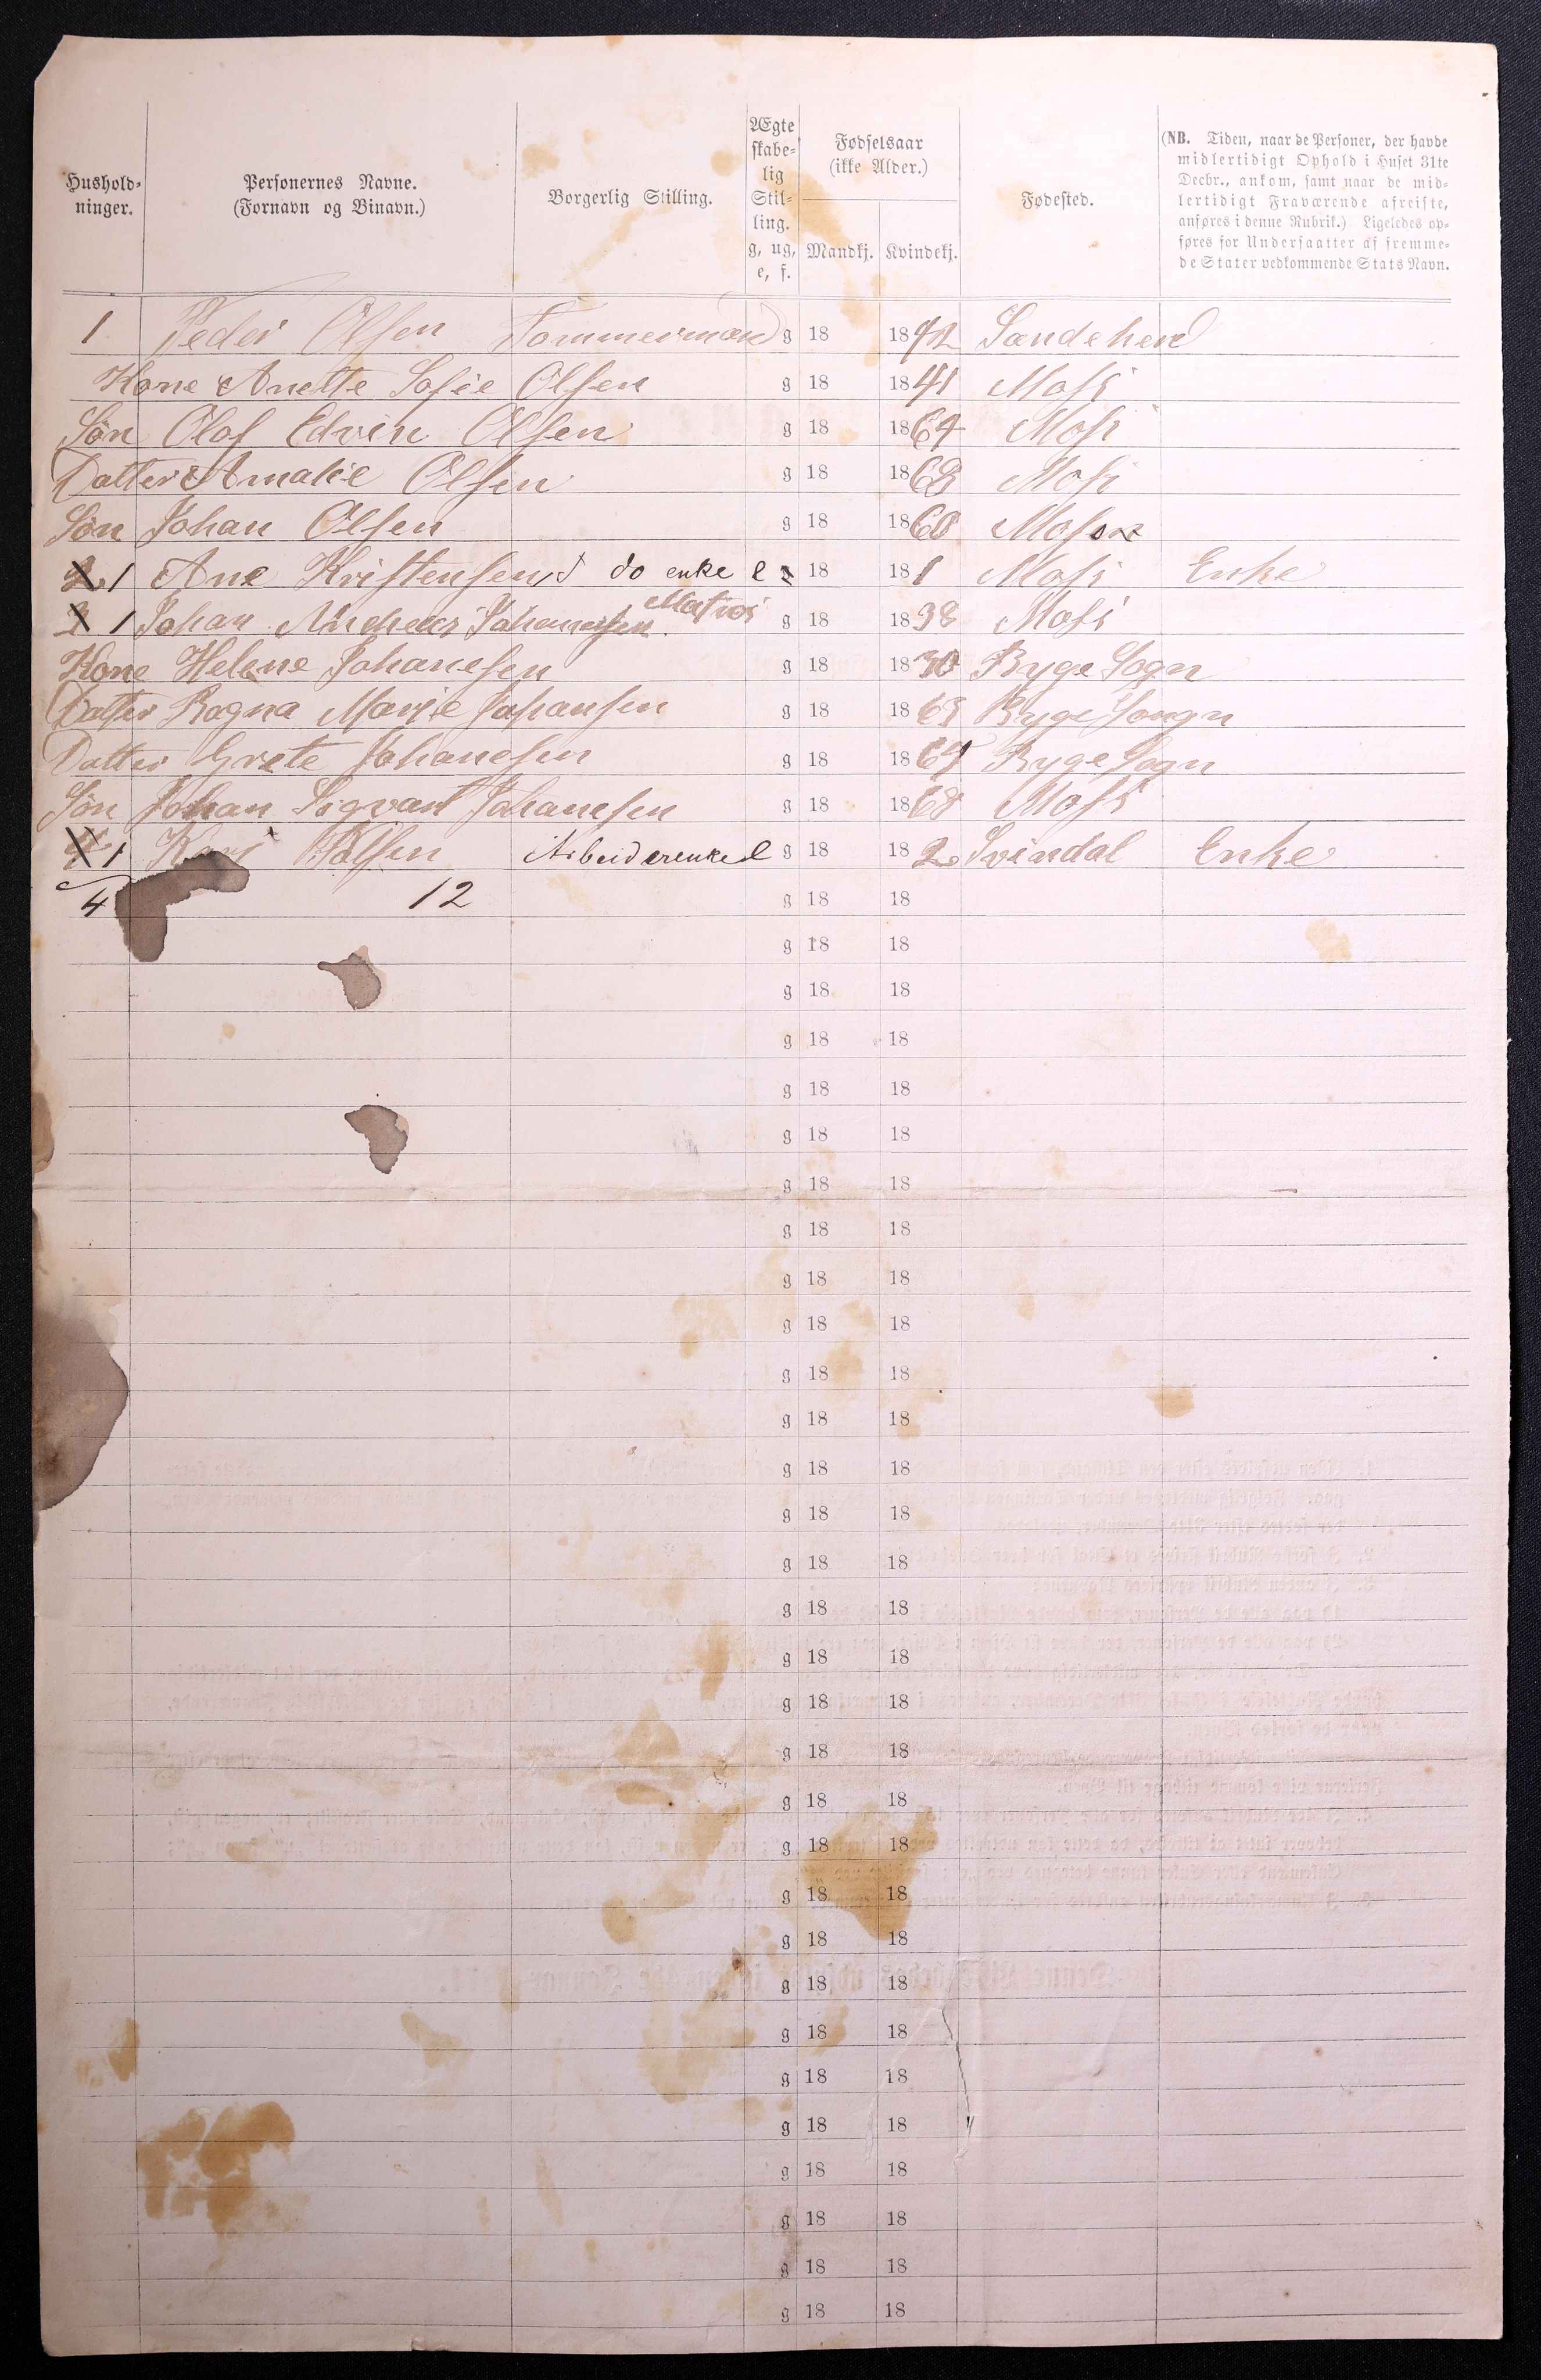 Hushold-
ninger.
Personernes Navne.
(Fornavn og Binavn.)
Borgerlig Stilling.
Ægte
skabe-
lig
Stil-
ling.
g, ug,
e, f.
Fødselsaar
(ikke Alder.)
Mandkj. Kvindekj.
Fødested.
(NB. Tiden, naar de Personer, der havde
midlertidigt Ophold i Huset 31te
Decbr., ankom, samt naar de mid-
lertidigt Fraværende afreiste,
anføres i denne Rubrik.) Ligeledes op-
føres for Undersaatter af fremme-
de Stater vedkommende Stats Navn.
1 Peder Olsen Tommermand g 18 1842 Sandeherred
Kone Anette Sofie Olsen g 18 1841 Moss
Søn Olaf Edvin Olsen g 18 1864 Moss
Datter Amalie Olsen g 18 1868 Moss
Søn Johan Olsen g 18 18 Moss
1 Ane Kristensen do enke e 18 181 Moss Enke
1 Johan Andreas Johannesen Matros g 18 1838 Moss
Kone Helene Johanesen g 18 1830 Ryge Sogn
Datter Ragna Marie Johansen g 18 18 Ryge Songn
Datter Grete Johanesen g 18 18 Ryge Sogn
Søn Johan Sigvart Johanesen g 18 1868 Moss
1 Kari Pålsen Arbeiderenke e g 18 182 Svindal Enke
4 12 g 18 18
g 18 18
g 18 18
g 18 18
g 18 18
g 18 18
g 18 18
g 18 18
g 18 18
g 18 18
g 18 18
g 18 18
g 18 18
g 18 18
g 18 18
g 18 18
g 18 18
g 18 18
g 18 18
g 18 18
g 18 18
g 18 18
g 18 18
g 18 18
g 18 18
g 18 18
g 18 18
g 18 18
g 18 18
g 18 18
g 18 18